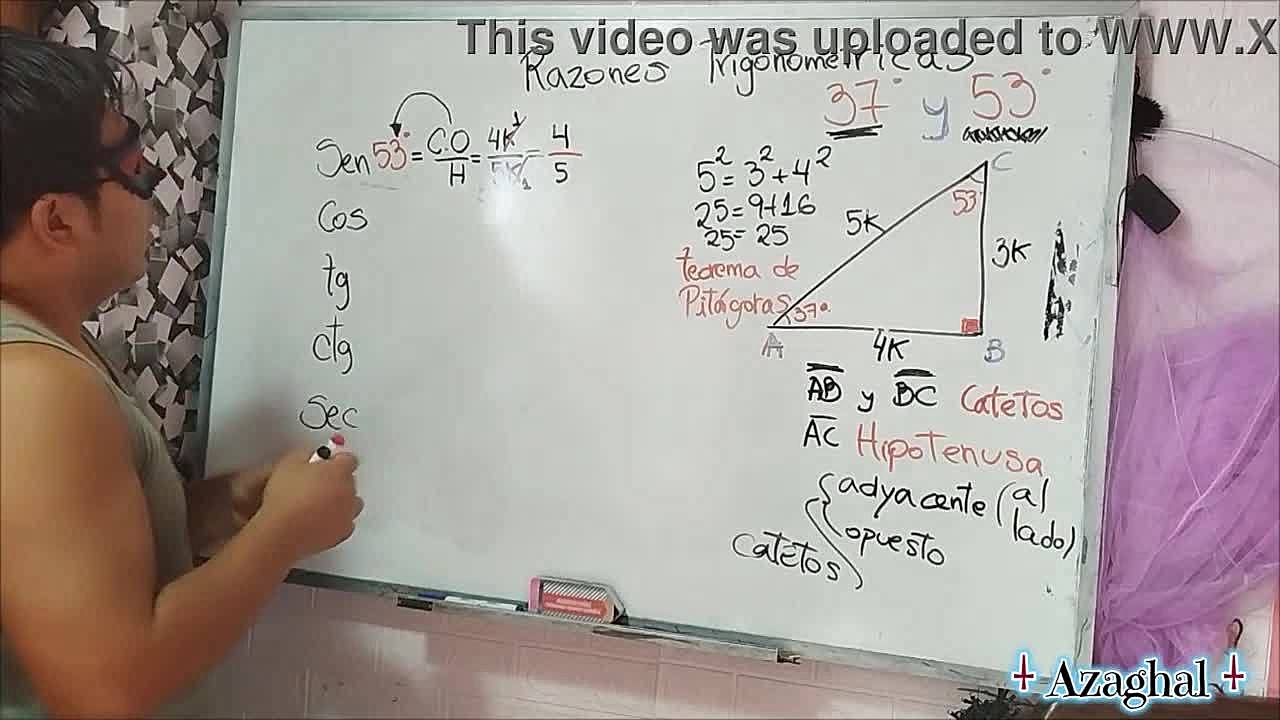 This video was uploaded to WWW.X
Razones Trigonometricas
37° y 53°
Sen 53° = C.O/H = 4K/5K = 4/5
Cos
tg
ctg
Sec
5² = 3² + 4²
25 = 9+16
25 = 25
teorema de
Pitágoras
C
53
5K
3K
37°
A
4K
B
AB y BC Catetos
AC Hipotenusa
Catetos
adyacente (al
lado)
opuesto
Azaghal